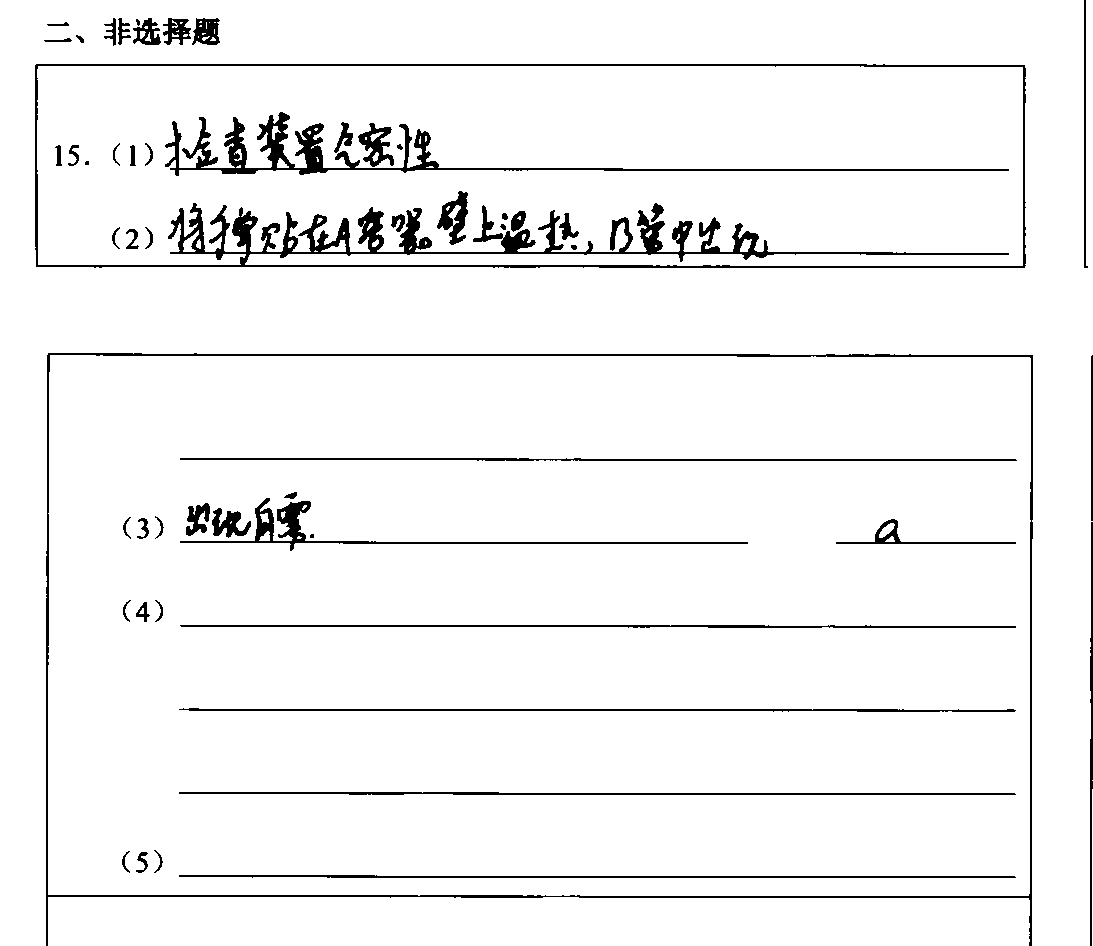 二、非选择题
15.（1）检查装置气密性
（2）将手掌贴在A容器壁上温热，B管中出现
（3）出现白雾. a
（4）
（5）